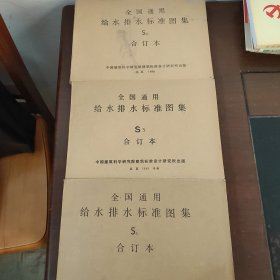 全国通用
给水排水标准图集
S
合订本
中国建筑科学研究院建筑标准设计研究所出版
全国通用
给水排水标准图集
S₃
合订本
中国建筑科学研究院建筑标准设计研究所出版
全国通用
给水排水标准图集
S
合订本